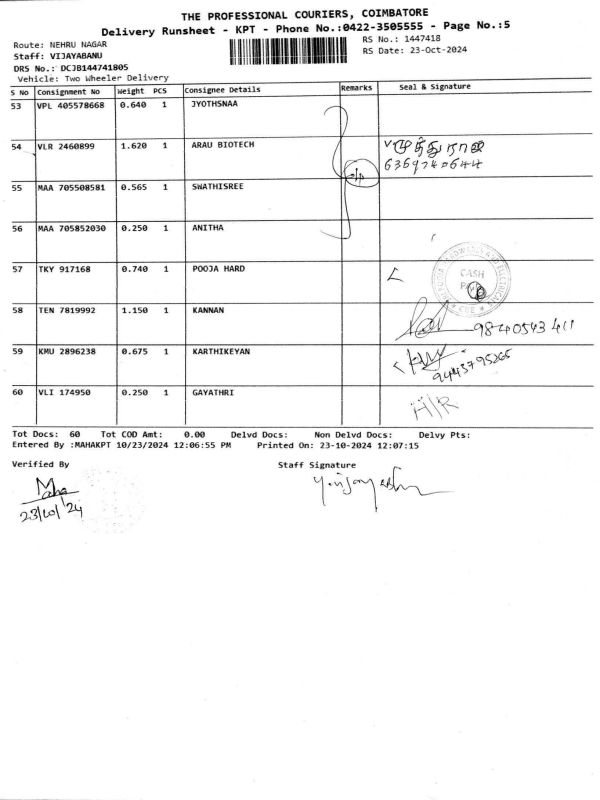 THE PROFESSIONAL COURIERS, COIMBATORE
Delivery Runsheet - KPT - Phone No.:0422-3505555 - Page No.:5
Route: NEHRU NAGAR
RS No.: 1447418
Staff: VIJAYABANU
RS Date: 23-Oct-2024
DRS No.: DCJB144741805
Vehicle: Two Wheeler Delivery
S No Consignment No Weight PCS Consignee Details Remarks Seal & Signature
53 VPL 405578668 0.640 1 JYOTHSNAA
54 VLR 2460899 1.620 1 ARAU BIOTECH
55 MAA 705508581 0.565 1 SWATHISREE
56 MAA 705852030 0.250 1 ANITHA
57 TKY 917168 0.740 1 POOJA HARD
CASH
58 TEN 7819992 1.150 1 KANNAN
9840543411
59 KMU 2896238 0.675 1 KARTHIKEYAN
9443795265
60 VLI 174950 0.250 1 GAYATHRI
H/R
Tot Docs: 60 Tot COD Amt: 0.00 Delvd Docs: Non Delvd Docs: Delvy Pts:
Entered By :MAHAKPT 10/23/2024 12:06:55 PM Printed On: 23-10-2024 12:07:15
Verified By
Staff Signature
Maha
23/10/24